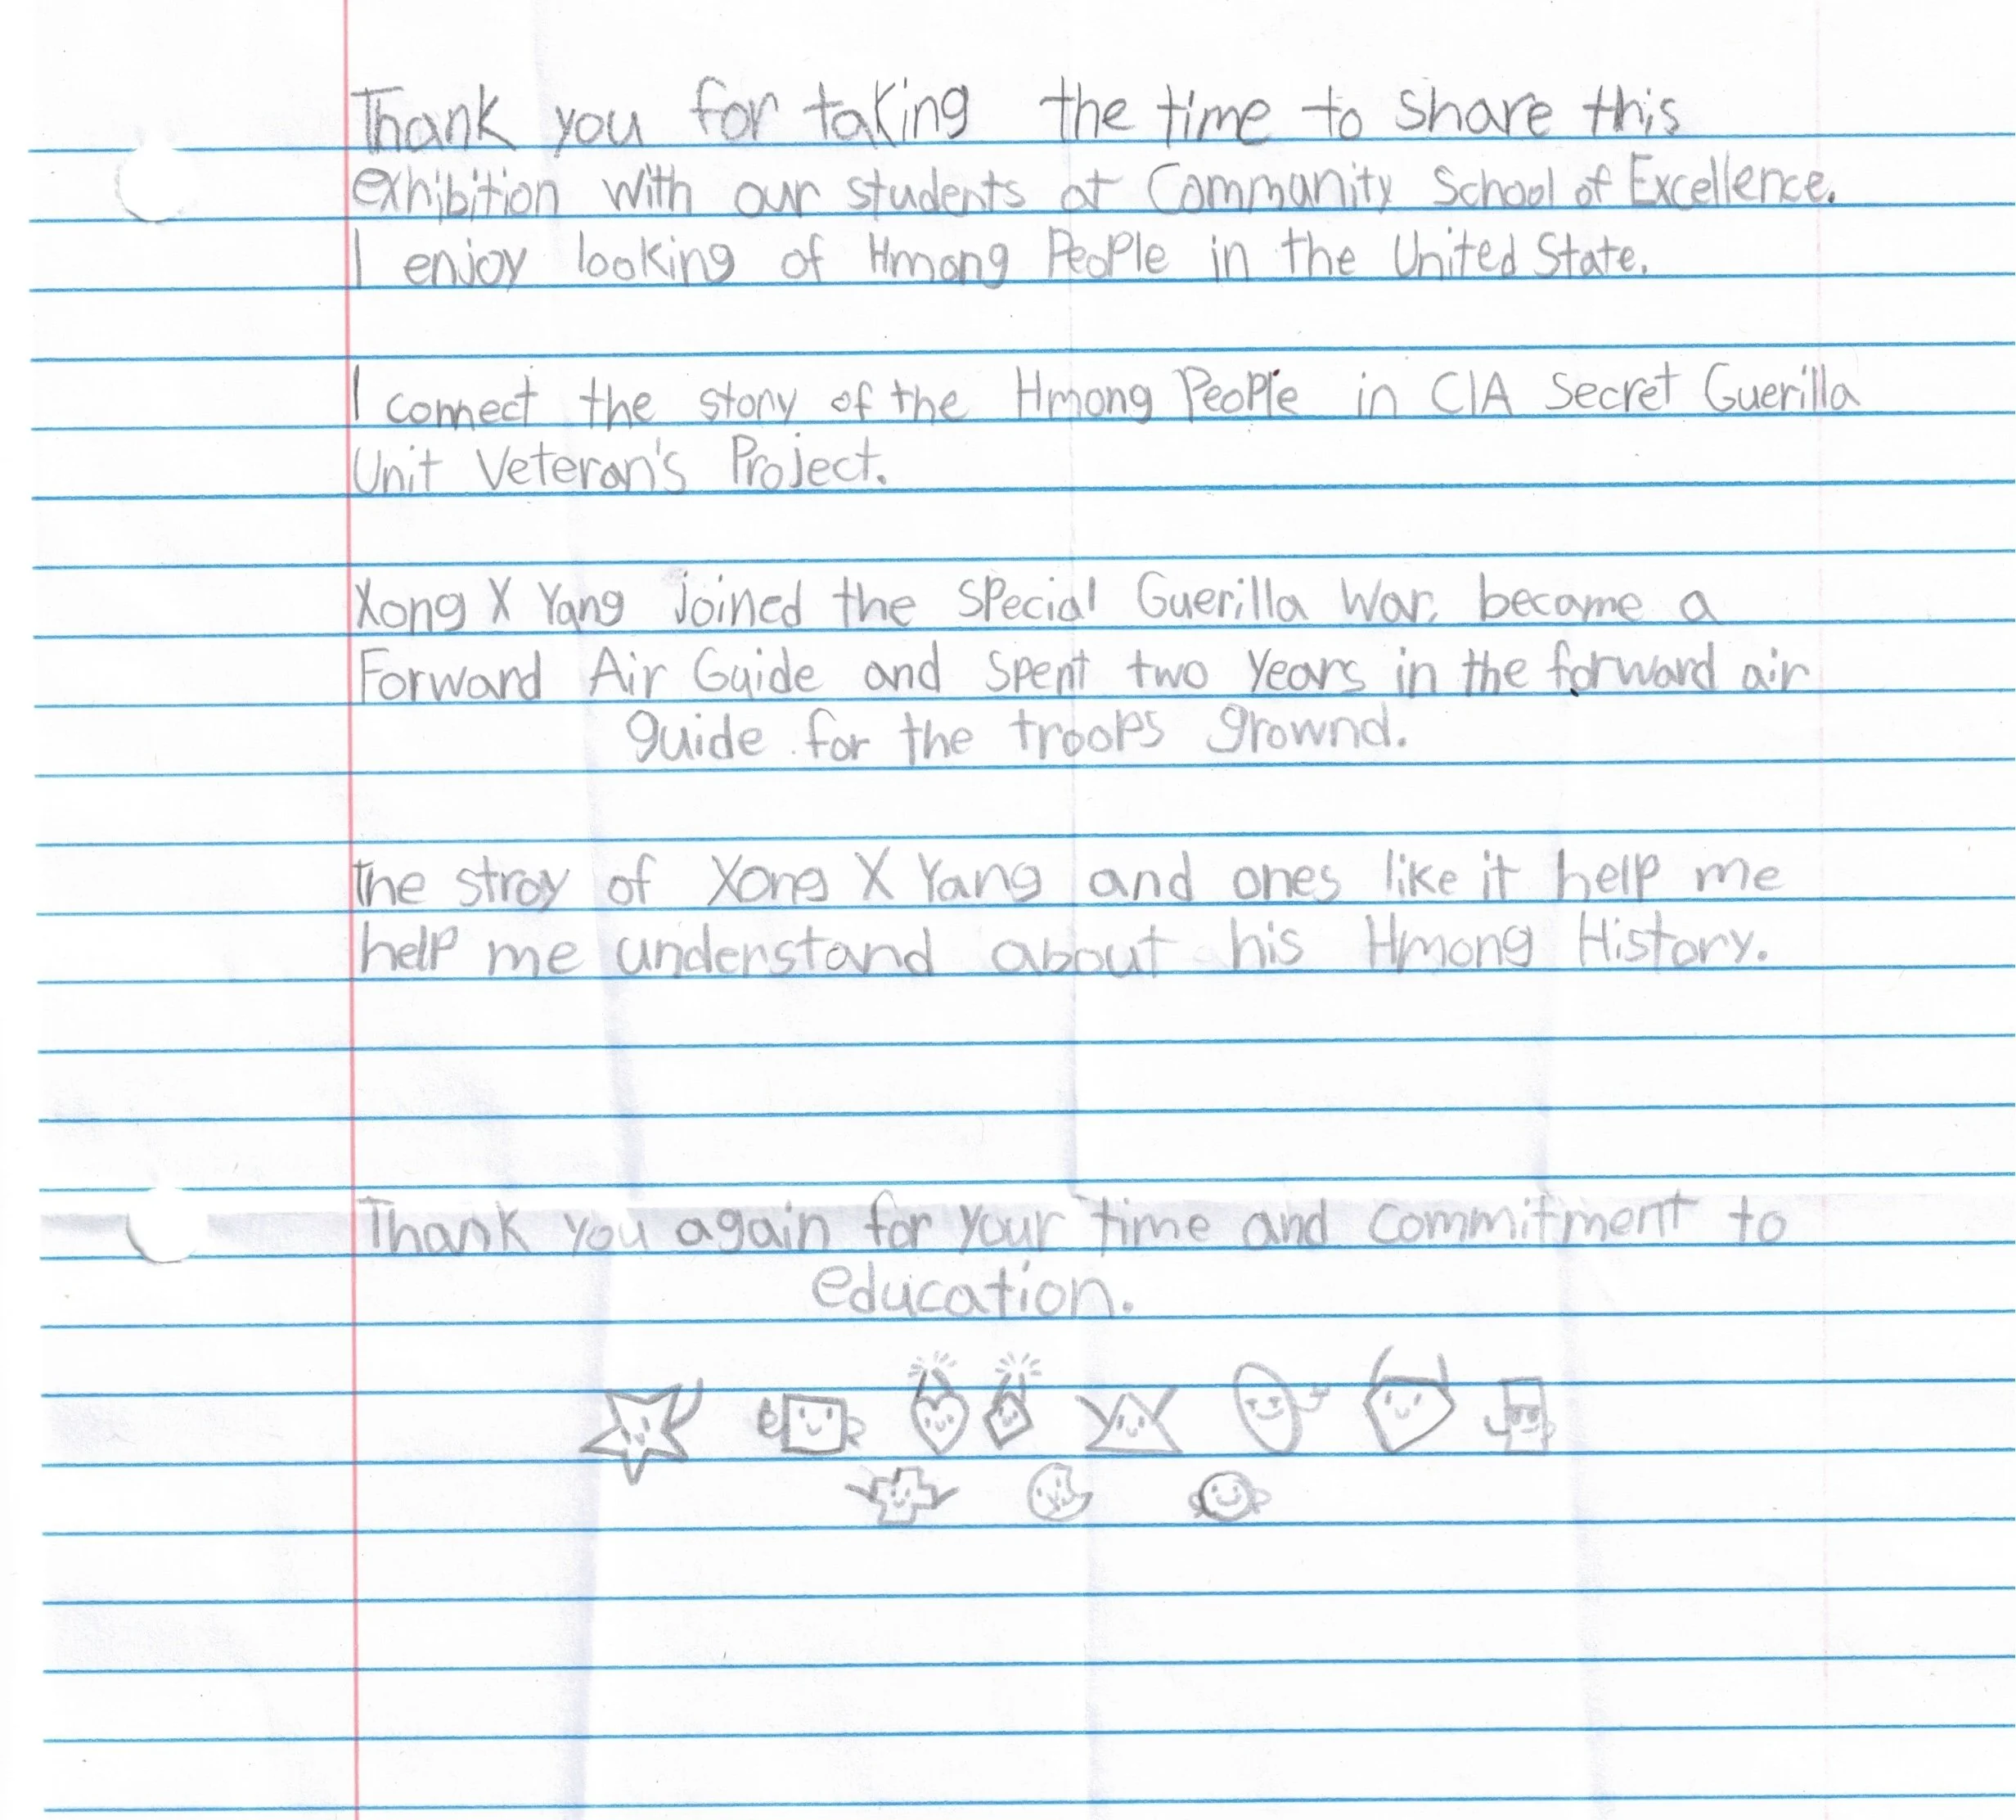 Thank you for taking the time to share this
exhibition with our students at Community School of Excellence.
I enjoy looking of Hmong People in the United State.
I connect the story of the Hmong People in CIA Secret Guerilla
Unit Veteran's Project.
Xong X Yang joined the Special Guerilla War, become a
Forward Air Guide and spent two years in the forward air
guide for the troops grownd.
the stroy of Xong X Yang and ones like it help me
help me understand about his Hmong History.
Thank you again for your time and commitment to
education.